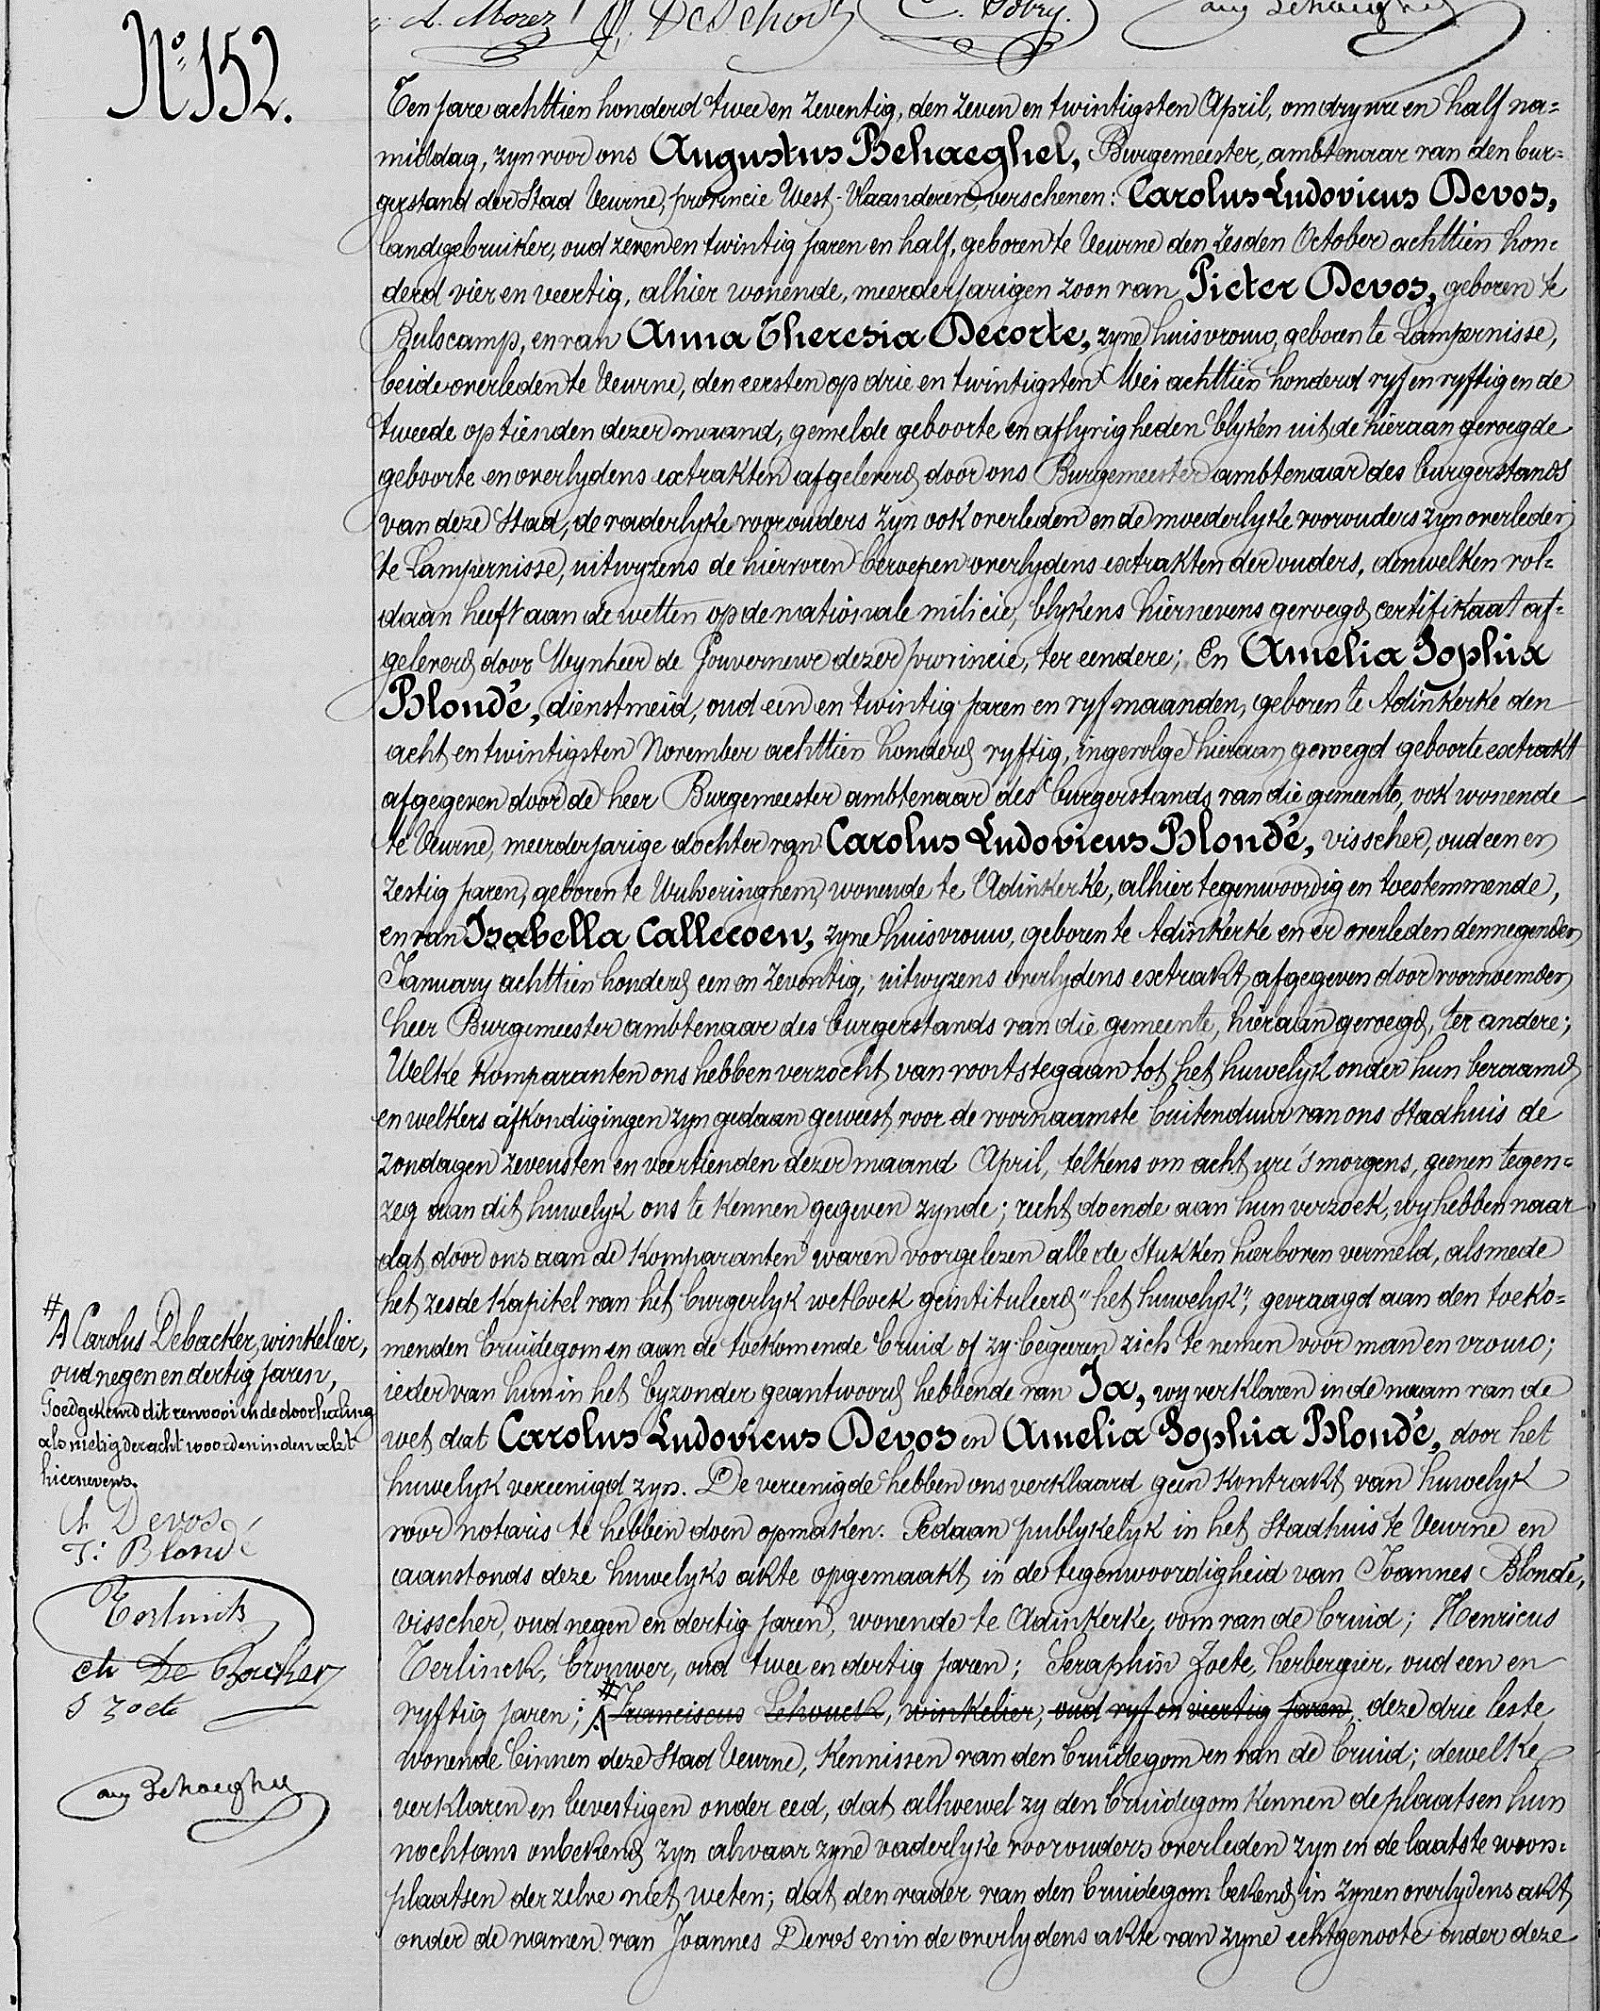 A. Morez P. De Schodt C. Dobry. aug Behaeghel
N.º 152.
Ten jare achttien honderd twee en zeventig, den zeven en twintigsten April, om dry ure en half na=
middag, zyn voor ons Augustus Behaeghel, Burgemeester, ambtenaar van den bur=
gerstand der Stad Veurne, provincie West-Vlaanderen, verschenen: Carolus Ludovicus Devos,
landgebruiker, oud zeven en twintig jaren en half, geboren te Veurne den zesden October achttien hon=
derd vier en veertig, alhier wonende, meerderjarigen zoon van Pieter Devos, geboren te
Bulscamp, en van Anna Theresia Decorte, zyne huisvrouw, geboren te Lampernisse,
beide overleden te Veurne, den eersten op drie en twintigsten Mei achttien honderd vyf en vyftig en de
tweede op tienden dezer maand, gemelde geboorte en aflyvigheden blyken uit de hieraan gevoegde
geboorte en overlydens extrakten afgeleverd door ons Burgemeester ambtenaar des burgerstands
van deze Stad, de vaderlyke voorouders zyn ook overleden en de moederlyke voorouders zyn overleden
te Lampernisse, uitwyzens de hiervoren beroepen overlydens extrakten der ouders, denwelken vol=
daan heeft aan de wetten op de nationale milicie, blykens hiernevens gevoegd certifikaat af=
geleverd door Mynheer de Gouverneur dezer provincie, ter eendere; En Amelia Sophia
Blondé, dienstmeid, oud een en twintig jaren en vyf maanden, geboren te Adinkerke den
acht en twintigsten November achttien honderd vyftig, ingevolge hieraan gevoegd geboorte extrakt
afgegeven door de heer Burgemeester ambtenaar des burgerstands van die gemeente, ook wonende
te Veurne, meerderjarige dochter van Carolus Ludovicus Blondé, visscher, oud een en
zestig jaren, geboren te Wulveringhem, wonende te Adinkerke, alhier tegenwoordig en toestemmende,
en van Isabella Callecoen, zyne huisvrouw, geboren te Adinkerke en er overleden den negenden
January achttien honderd een en zeventig, uitwyzens overlydens extrakt afgegeven door voornoemden
heer Burgemeester ambtenaar des burgerstands van die gemeente, hieraan gevoegd, ter andere;
Welke komparanten ons hebben verzocht van voorts te gaan tot het huwelyk onder hun beraamd
en welkers afkondigingen zyn gedaan geweest voor de voornaamste buitendeur van ons Stadhuis de
zondagen zevensten en veertienden dezer maand April, telkens om acht ure 's morgens, geenen tegen=
zeg aan dit huwelyk ons te kennen gegeven zynde; recht doende aan hun verzoek, wy hebben naar
dat door ons aan de komparanten waren voorgelezen alle de stukken hierboven vermeld, alsmede
het zesde kapitel van het burgerlyk wetboek geintituleerd "het huwelyk", gevraagd aan den toeko=
menden bruidegom en aan de toekomende bruid of zy begeeren zich te nemen voor man en vrouw;
ieder van hun in het byzonder geantwoord hebbende van Ja, wy verklaren in de naam van de
wet dat Carolus Ludovicus Devos en Amelia Sophia Blondé, door het
huwelyk vereenigd zyn. De vereenigde hebben ons verklaard geen kontrakt van huwelyk
voor notaris te hebben doen opmaken. Gedaan publykelyk in het Stadhuis te Veurne en
aanstonds deze huwelyks akte opgemaakt in de tegenwoordigheid van Joannes Blondé,
visscher, oud negen en dertig jaren, wonende te Adinkerke, oom van de bruid; Henricus
Terlinck, brouwer, oud twee en dertig jaren; Seraphin Zoete, herbergier, oud een en
vyftig jaren; # Franciscus Schouck, winkelier, oud vyf en viertig jaren, deze drie leste
wonende binnen deze Stad Veurne, kennissen van den bruidegom en van de bruid; dewelke
verklaren en bevestigen onder eed, dat alhoewel zy den bruidegom kennen de plaatsen hun
nochtans onbekend zyn alwaar zyne vaderlyke voorouders overleden zyn en de laatste woon=
plaatsen derzelve niet weten; dat den vader van den bruidegom bekend in zynen overlydens akt
onder de namen van Joannes Devos en in de overlydens akte van zyne echtgenoote onder deze
# A Carolus Debacker, winkelier,
oud negen en dertig jaren,
Goedgekeurd dit renvooi en de doorhaling
als nietig der acht woorden in den akt
hiernevens.
A Devos
J: Blondé
Terlinck
ch De Backer
S Zoete
aug Behaeghel